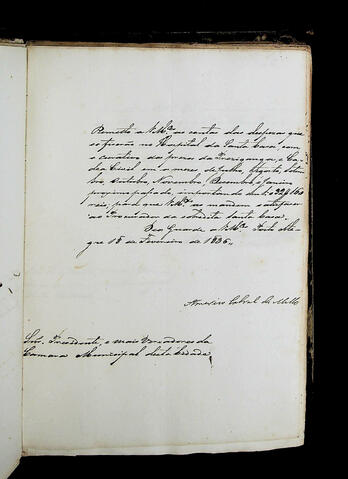 Remetto a V.Mces as contas das despezas que
se fizerão no Hospital da Santa Caza, com
o curativo dos prezos da Prezigangа, e Ca-
dea Civil em os mezes de Julho, Agosto, Setem-
bro, Outubro, Novembro, Dezembro, Janeiro
proximo passado, importando de
reis, para que V.Mces as mandem satisfazer
ao Procurador da sobredita Santa Caza.
Deos Guarde a V.Mces Porto Ale-
gre 18 de Fevereiro de 1836.
Americo Cabral de Mello
Snrs. Presidente, e mais Vereadores da
Camara Municipal desta Cidade